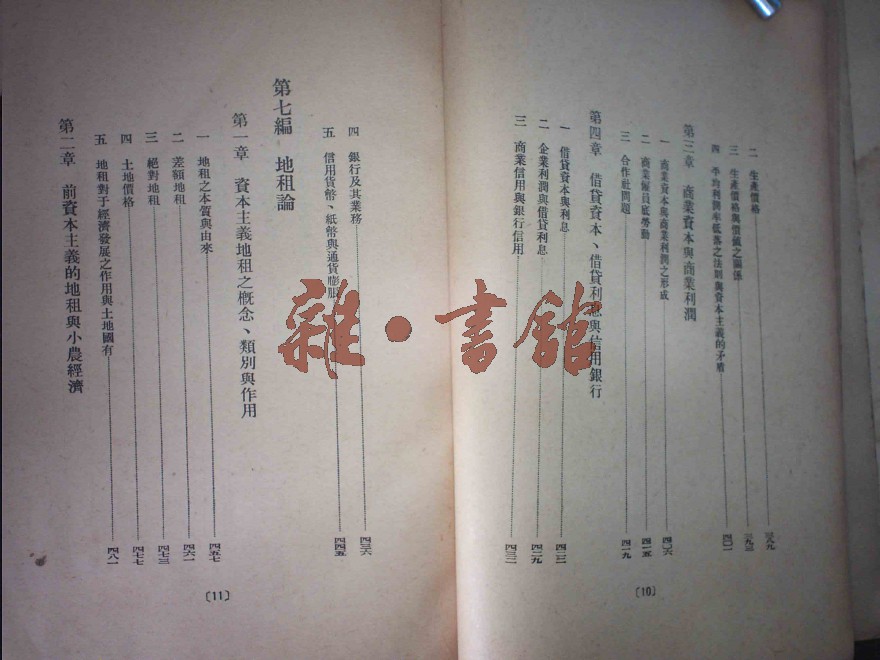 二 生產價格……三八九
三 生產價格與價值之關係……三九三
四 平均利潤率低落之法則與資本主義的矛盾……四〇一
第三章 商業資本與商業利潤
一 商業資本與商業利潤之形成……四〇六
二 商業僱員底勞動……四一五
三 合作社問題……四一九
第四章 借貸資本、借貸利息與信用銀行
一 借貸資本與利息……四二二
二 企業利潤與借貸利息……四二九
三 商業信用與銀行信用……四三二
〔10〕
四 銀行及其業務……四三六
五 信用貨幣、紙幣與通貨膨脹……四四五
第七編 地租論
第一章 資本主義地租之概念、類別與作用
一 地租之本質與由來……四五七
二 差額地租……四六一
三 絕對地租……四七三
四 土地價格……四七七
五 地租對于經濟發展之作用與土地國有……四八一
第二章 前資本主義的地租與小農經濟
〔11〕
雜·書館